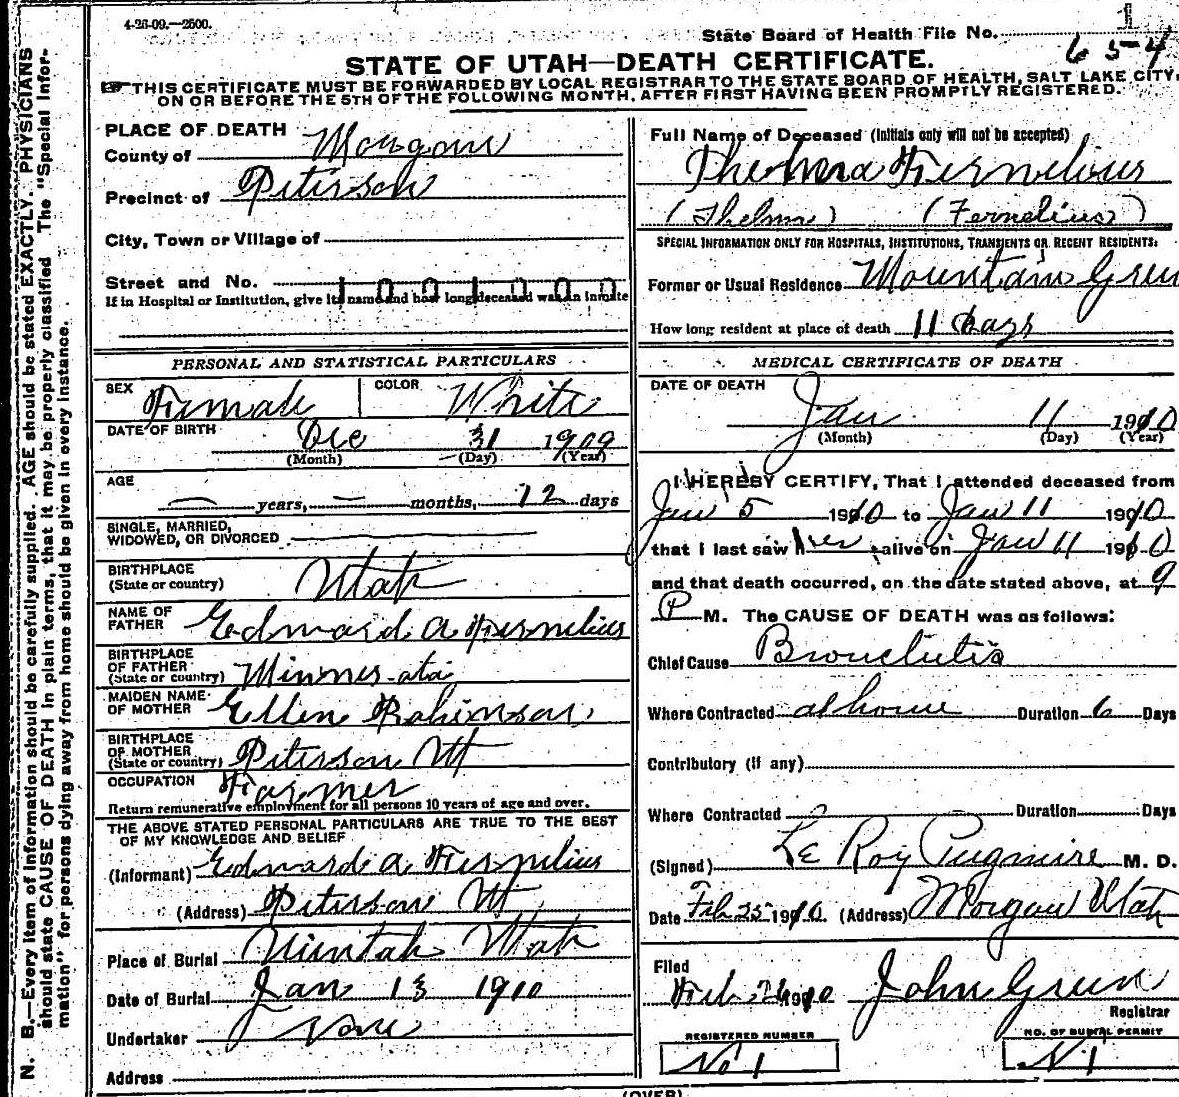 4-26-09.—2500.
1
State Board of Health File No.
654
STATE OF UTAH—DEATH CERTIFICATE.
THIS CERTIFICATE MUST BE FORWARDED BY LOCAL REGISTRAR TO THE STATE BOARD OF HEALTH, SALT LAKE CITY,
ON OR BEFORE THE 5TH OF THE FOLLOWING MONTH, AFTER FIRST HAVING BEEN PROMPTLY REGISTERED.
N. B.—Every item of information should be carefully supplied. AGE should be stated EXACTLY. PHYSICIANS
should state CAUSE OF DEATH in plain terms, that it may be properly classified. The "Special Infor-
mation" for persons dying away from home should be given in every instance.
PLACE OF DEATH
County of Morgan
Precinct of Peterson
City, Town or Village of
Street and No.
If in Hospital or Institution, give its name and how long deceased was an inmate
PERSONAL AND STATISTICAL PARTICULARS
SEX Female COLOR White
DATE OF BIRTH Dec 31 1909
(Month) (Day) (Year)
AGE
— years, — months, 12 days
SINGLE, MARRIED,
WIDOWED, OR DIVORCED
BIRTHPLACE
(State or country) Utah
NAME OF
FATHER Edward A Fernelius
BIRTHPLACE
OF FATHER
(State or country) Minnesota
MAIDEN NAME
OF MOTHER Ellen Robinson
BIRTHPLACE
OF MOTHER
(State or country) Peterson Ut
OCCUPATION Farmer
Return remunerative employment for all persons 10 years of age and over.
THE ABOVE STATED PERSONAL PARTICULARS ARE TRUE TO THE BEST
OF MY KNOWLEDGE AND BELIEF
(Informant) Edward A Fernelius
(Address) Peterson Ut
Place of Burial Uintah Utah
Date of Burial Jan 13 1910
Undertaker None
Address
Full Name of Deceased (Initials only will not be accepted)
Thelma Fernelious
(Thelma) (Fernelius)
SPECIAL INFORMATION ONLY FOR HOSPITALS, INSTITUTIONS, TRANSIENTS OR RECENT RESIDENTS:
Former or Usual Residence Mountain Green
How long resident at place of death 11 days
MEDICAL CERTIFICATE OF DEATH
DATE OF DEATH
Jan 11 1910
(Month) (Day) (Year)
I HEREBY CERTIFY, That I attended deceased from
Jan 5 1910 to Jan 11 1910
that I last saw her alive on Jan 11 1910
and that death occurred, on the date stated above, at 9
P M. The CAUSE OF DEATH was as follows:
Chief Cause Bronchitis
Where Contracted at home Duration 6 Days
Contributory (if any)
Where Contracted Duration Days
(Signed) Le Roy Pugmire M. D.
Date Feb 25 1910 (Address) Morgan Utah
Filed
Feb 26 1910 John Green
Registrar
REGISTERED NUMBER
No 1
NO. OF BURIAL PERMIT
N 1
(OVER)